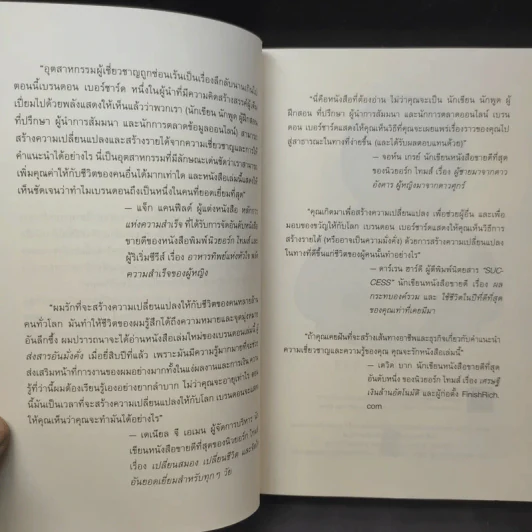 "อุตสาหกรรมผู้เชี่ยวชาญถูกซ่อนเร้นเป็นเรื่องลึกลับนานเกินไป
ตอนนี้เบรนดอน เบอร์ชาร์ด หนึ่งในผู้นำที่มีความคิดสร้างสรรค์
เปี่ยมไปด้วยพลังแสดงให้เห็นแล้วว่าพวกเรา (นักเขียน นักพูด ผู้ฝึกสอน
ที่ปรึกษา ผู้นำการสัมมนา และนักการตลาดข้อมูลออนไลน์)
สร้างความเปลี่ยนแปลงและสร้างรายได้จากความเชี่ยวชาญและการให้
คำแนะนำได้อย่างไร นี่เป็นอุตสาหกรรมที่มีลักษณะเด่นชัดว่าเราสามารถ
เพิ่มคุณค่าให้กับชีวิตของคนอื่นได้มากเท่าใด และหนังสือเล่มนี้แสดงให้
เห็นชัดเจนว่าทำไมเบรนดอนถึงเป็นหนึ่งในคนที่ยอดเยี่ยมที่สุด"
— แจ็ก แคนฟีลด์ ผู้แต่งหนังสือ หลักการ
แห่งความสำเร็จ ที่ได้รับการจัดอันดับหนังสือ
ขายดีของหนังสือพิมพ์นิวยอร์ก ไทมส์ และ
ผู้ริเริ่มซีรีส์ เรื่อง อาหารทิพย์แห่งหัวใจ พลัง
ความสำเร็จของผู้หญิง
"ผมรักที่จะสร้างความเปลี่ยนแปลงให้กับชีวิตของคนหลายล้าน
คนทั่วโลก มันทำให้ชีวิตของผมรู้สึกได้ถึงความหมายและจุดมุ่งหมาย
อันลึกซึ้ง ผมปรารถนาจะได้อ่านหนังสือเล่มใหม่ของเบรนดอนเล่มนี้
ส่งสารอันมั่งคั่ง เมื่อยี่สิบปีที่แล้ว เพราะมันมีความรู้มากมายที่จะช่วย
ส่งเสริมหน้าที่การงานของผมอย่างมากทั้งในแง่ผลงานและการเงิน ความ
รู้ที่ว่านี้ผมต้องเรียนรู้เองอย่างยากลำบาก ไม่ว่าคุณจะอายุเท่าไร
นี่มันเป็นเวลาที่จะสร้างความเปลี่ยนแปลงให้กับโลก เบรนดอนจะแสดง
ให้คุณเห็นว่าคุณจะทำมันได้อย่างไร"
— เดเนียล จี เอเมน ผู้จัดการบริหาร
เขียนหนังสือขายดีที่สุดของนิวยอร์ก ไทมส์
เรื่อง เปลี่ยนสมอง เปลี่ยนชีวิต และ
อันยอดเยี่ยมสำหรับทุก ๆ วัย
"นี่คือหนังสือที่ต้องอ่าน ไม่ว่าคุณจะเป็น นักเขียน นักพูด ผู้
ฝึกสอน ที่ปรึกษา ผู้นำการสัมมนา และนักการตลาดออนไลน์ เบรน
ดอน เบอร์ชาร์ดแสดงให้คุณเห็นวิธีที่คุณจะเผยแพร่เรื่องราวของคุณไป
สู่สาธารณะในทางที่ง่ายขึ้น (และได้รับผลตอบแทนด้วย)"
— จอห์น เกรย์ นักเขียนหนังสือขายดีที่สุด
ของนิวยอร์ก ไทมส์ เรื่อง ผู้ชายมาจากดาว
อังคาร ผู้หญิงมาจากดาวศุกร์
"คุณเกิดมาเพื่อสร้างความเปลี่ยนแปลง เพื่อช่วยผู้อื่น และเพื่อ
มอบของขวัญให้กับโลก เบรนดอน เบอร์ชาร์ดแสดงให้คุณเห็นวิธีการ
สร้างรายได้ (หรืออาจเป็นความมั่งคั่ง) ด้วยการสร้างความเปลี่ยนแปลง
ในทางที่ดีขึ้นแก่ชีวิตของผู้คนนั้นทำอย่างไร"
— ดาร์เรน ฮาร์ดี ผู้ตีพิมพ์นิตยสาร "SUC-
CESS" นักเขียนหนังสือขายดี เรื่อง ผล
กระทบองค์รวม และ ใช้ชีวิตในปีที่ดีที่สุด
ของคุณเท่าที่เคยมีมา
"ถ้าคุณเคยฝันที่จะสร้างเส้นทางอาชีพและธุรกิจเกี่ยวกับคำแนะนำ
ความเชี่ยวชาญและความรู้ของคุณ คุณจะรักหนังสือเล่มนี้"
— เดวิด บาก นักเขียนหนังสือขายดีที่สุด
อันดับหนึ่ง ของนิวยอร์ก ไทมส์ เรื่อง เศรษฐี
เงินล้านอัตโนมัติ และผู้ก่อตั้ง FinishRich.
com